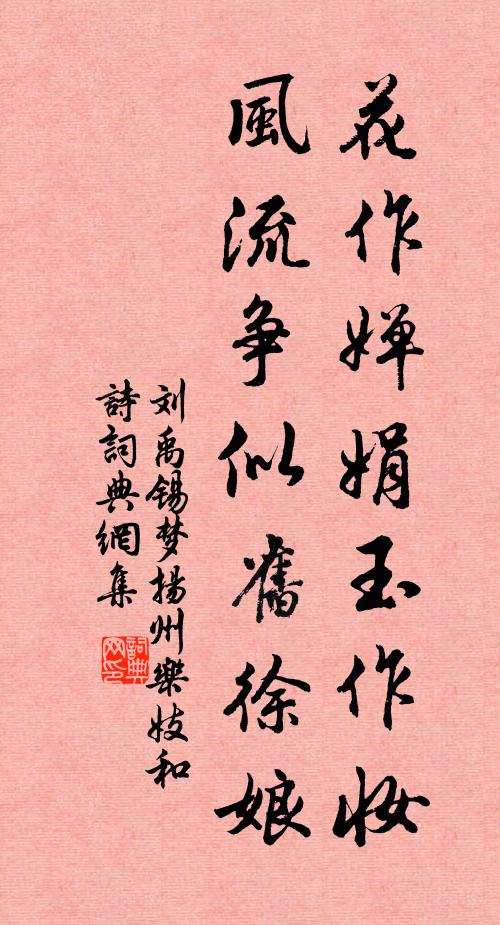 花作婵娟玉作妆
風流争似舊徐娘
刘禹锡梦揚州樂妓和
詩詞典網集
詞典网印